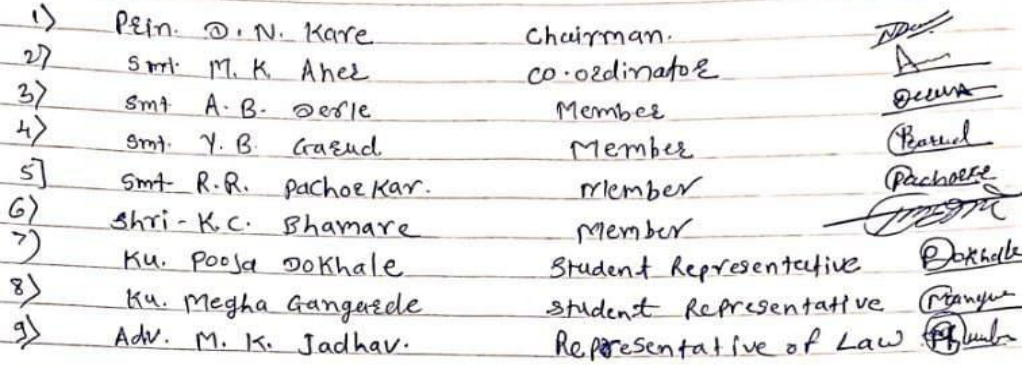 1) Prin. D. N. Kare Chairman.
2) Smt. M. K. Aher co-ordinator
3) Smt A. B. Derle Member
4) Smt. Y. B. Garud Member Garud
5] Smt R.R. Pachorkar. Member Pachorkr
6) Shri - K.C. Bhamare Member
7) Ku. Pooja Dokhale Student Representative Dokhale
8) Ku. Megha Gangurde Student Representative
9) Adv. M. K. Jadhav. Representative of Law